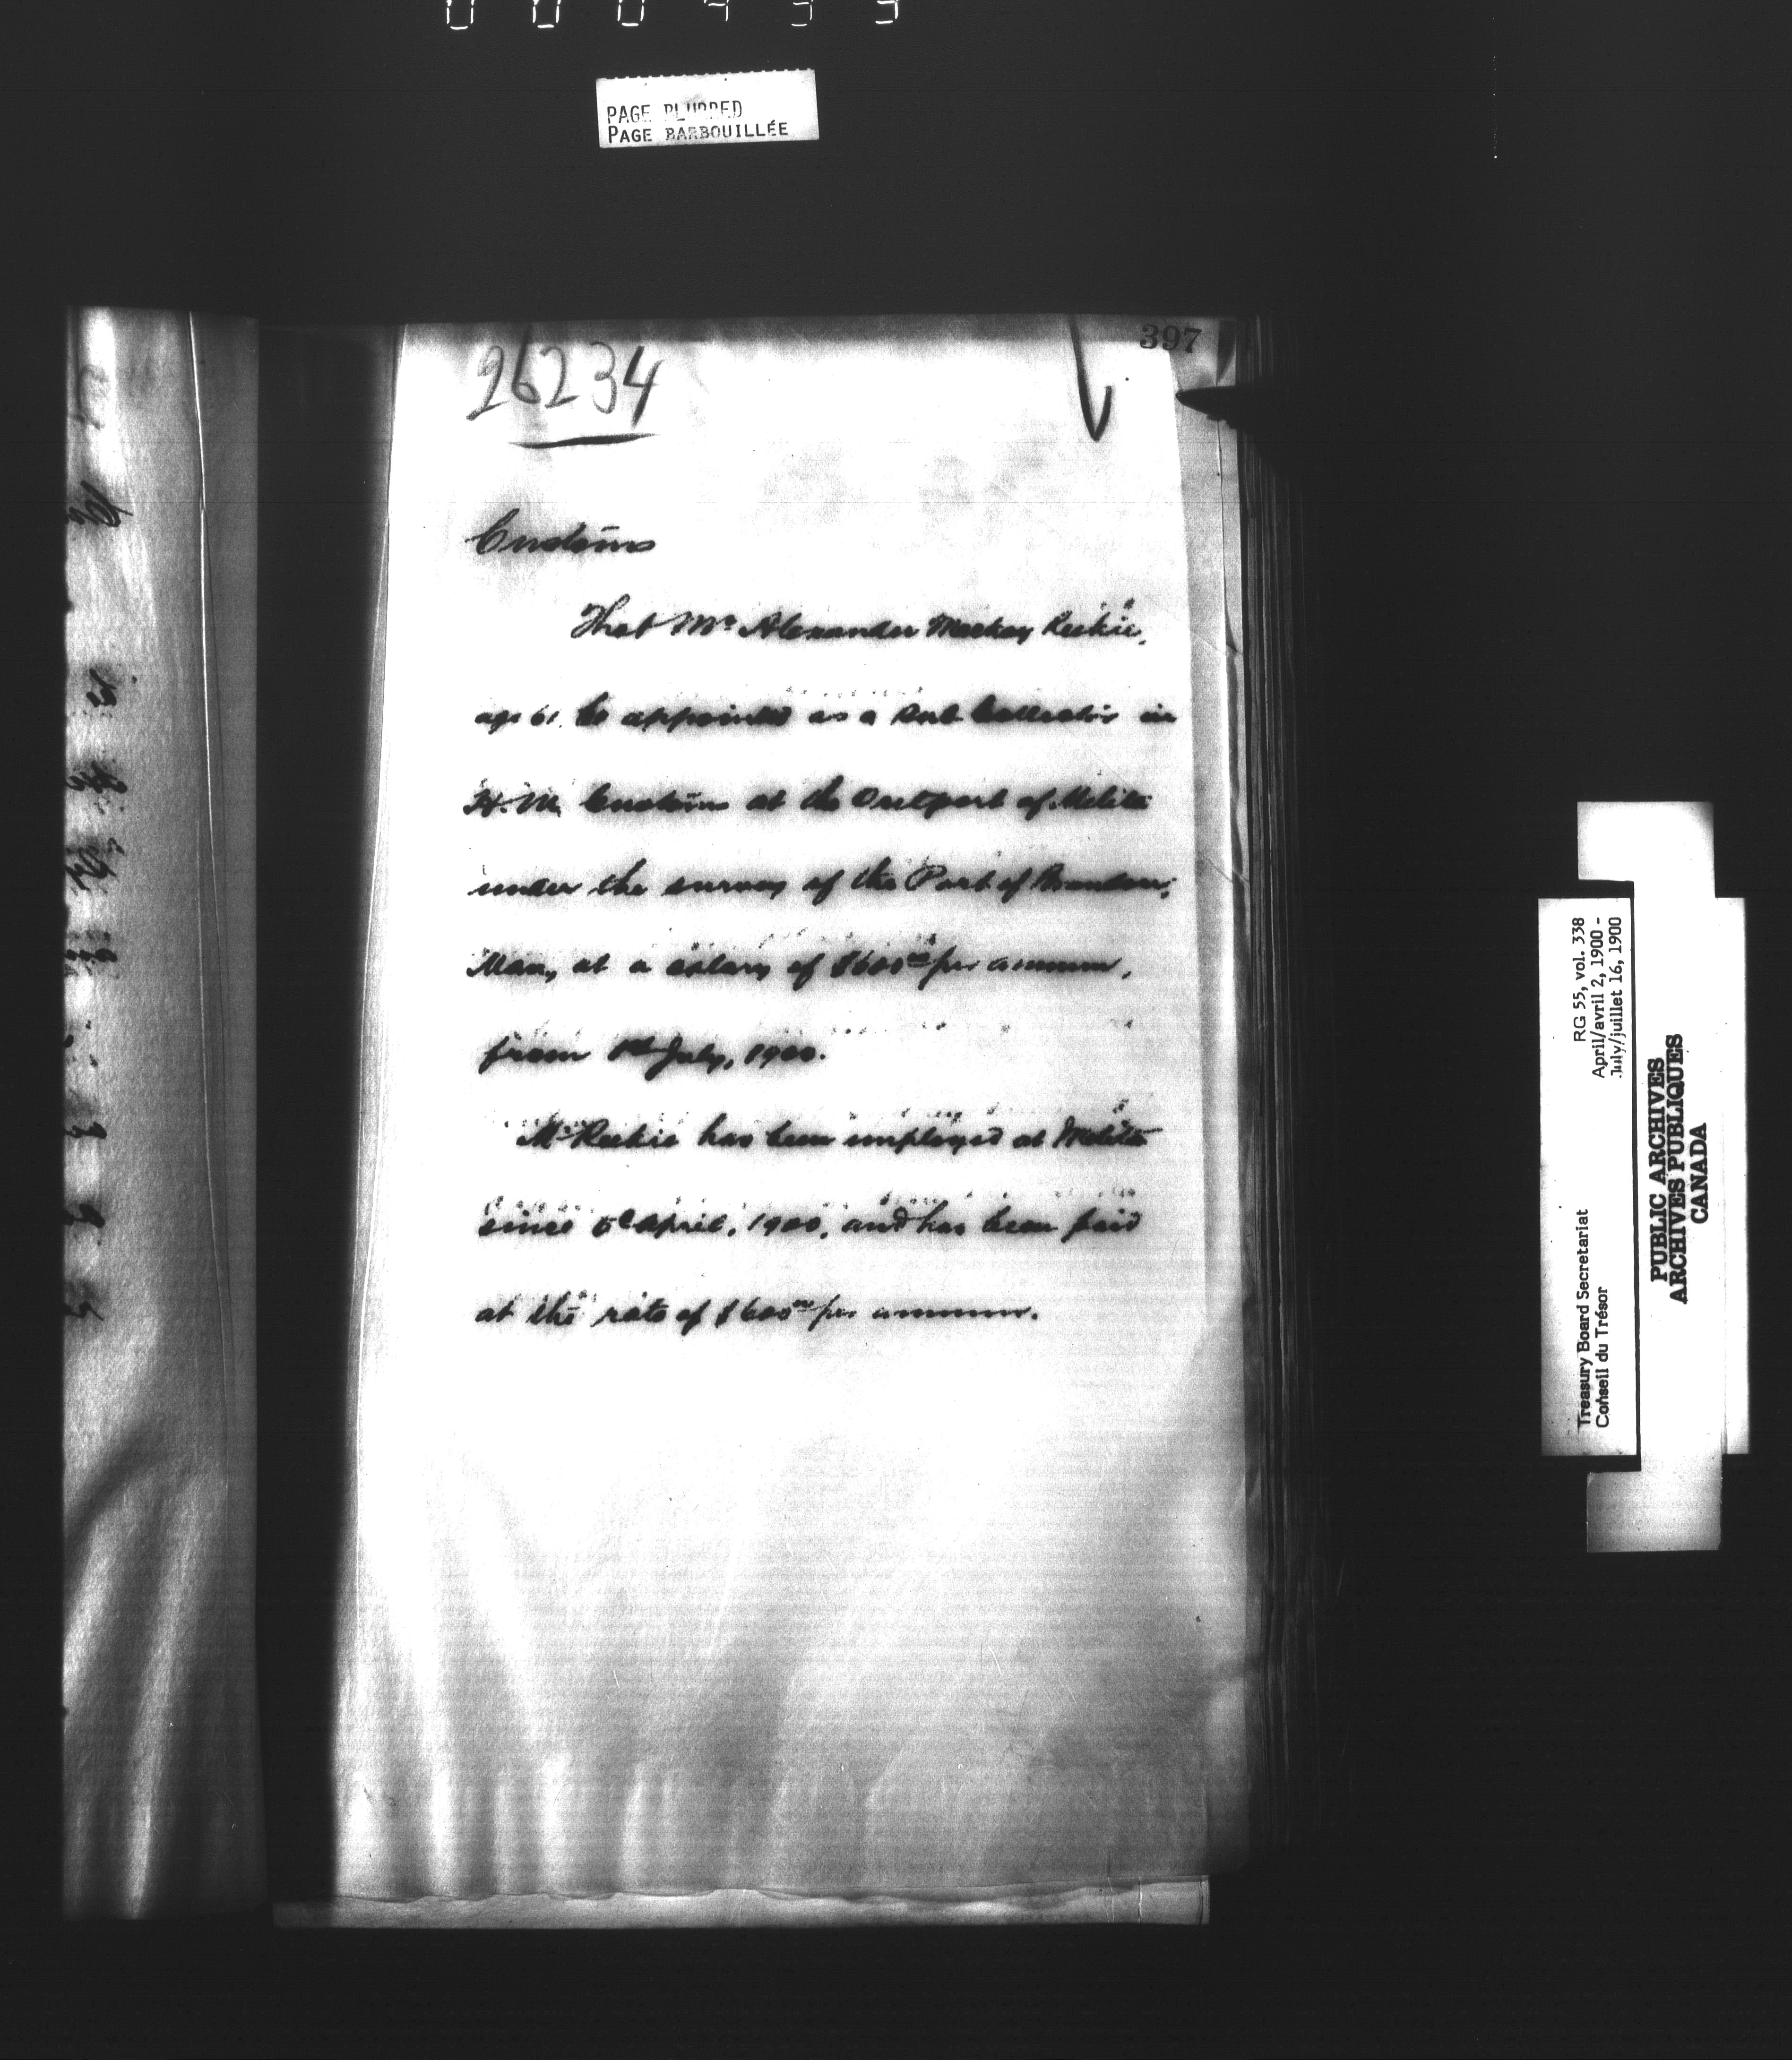 PAGE BLURRED
PAGE BARBOUILLÉE
397
26234
Customs
That Mr Alexander Mackay Reekie,
age 61. be appointed as a Sub Collector in
H. M. Customs at the Outport of Melita
under the survey of the Port of Brandon,
Man, at a salary of $600.00 per annum,
from 1st July, 1900.
Mr Reekie has been employed at Melita
since April, 1900, and has been paid
at the rate of $600.00 per annum.
RG 55, vol. 338
April/avril 2, 1900 -
July/juillet 16, 1900
Treasury Board Secretariat
Conseil du Trésor
PUBLIC ARCHIVES
ARCHIVES PUBLIQUES
CANADA